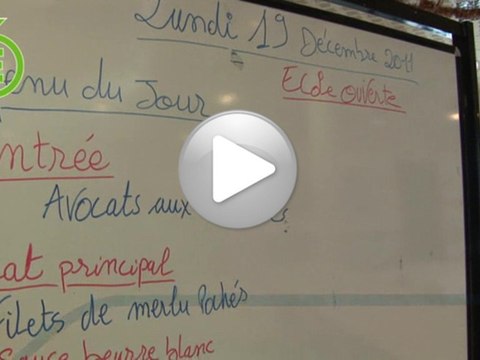 Lundi 19 Décembre 2011
École ouverte
enu du Jour
ntrée
Avocats aux
at principal
Filets de merlu Pochés
Sauce beurre blanc